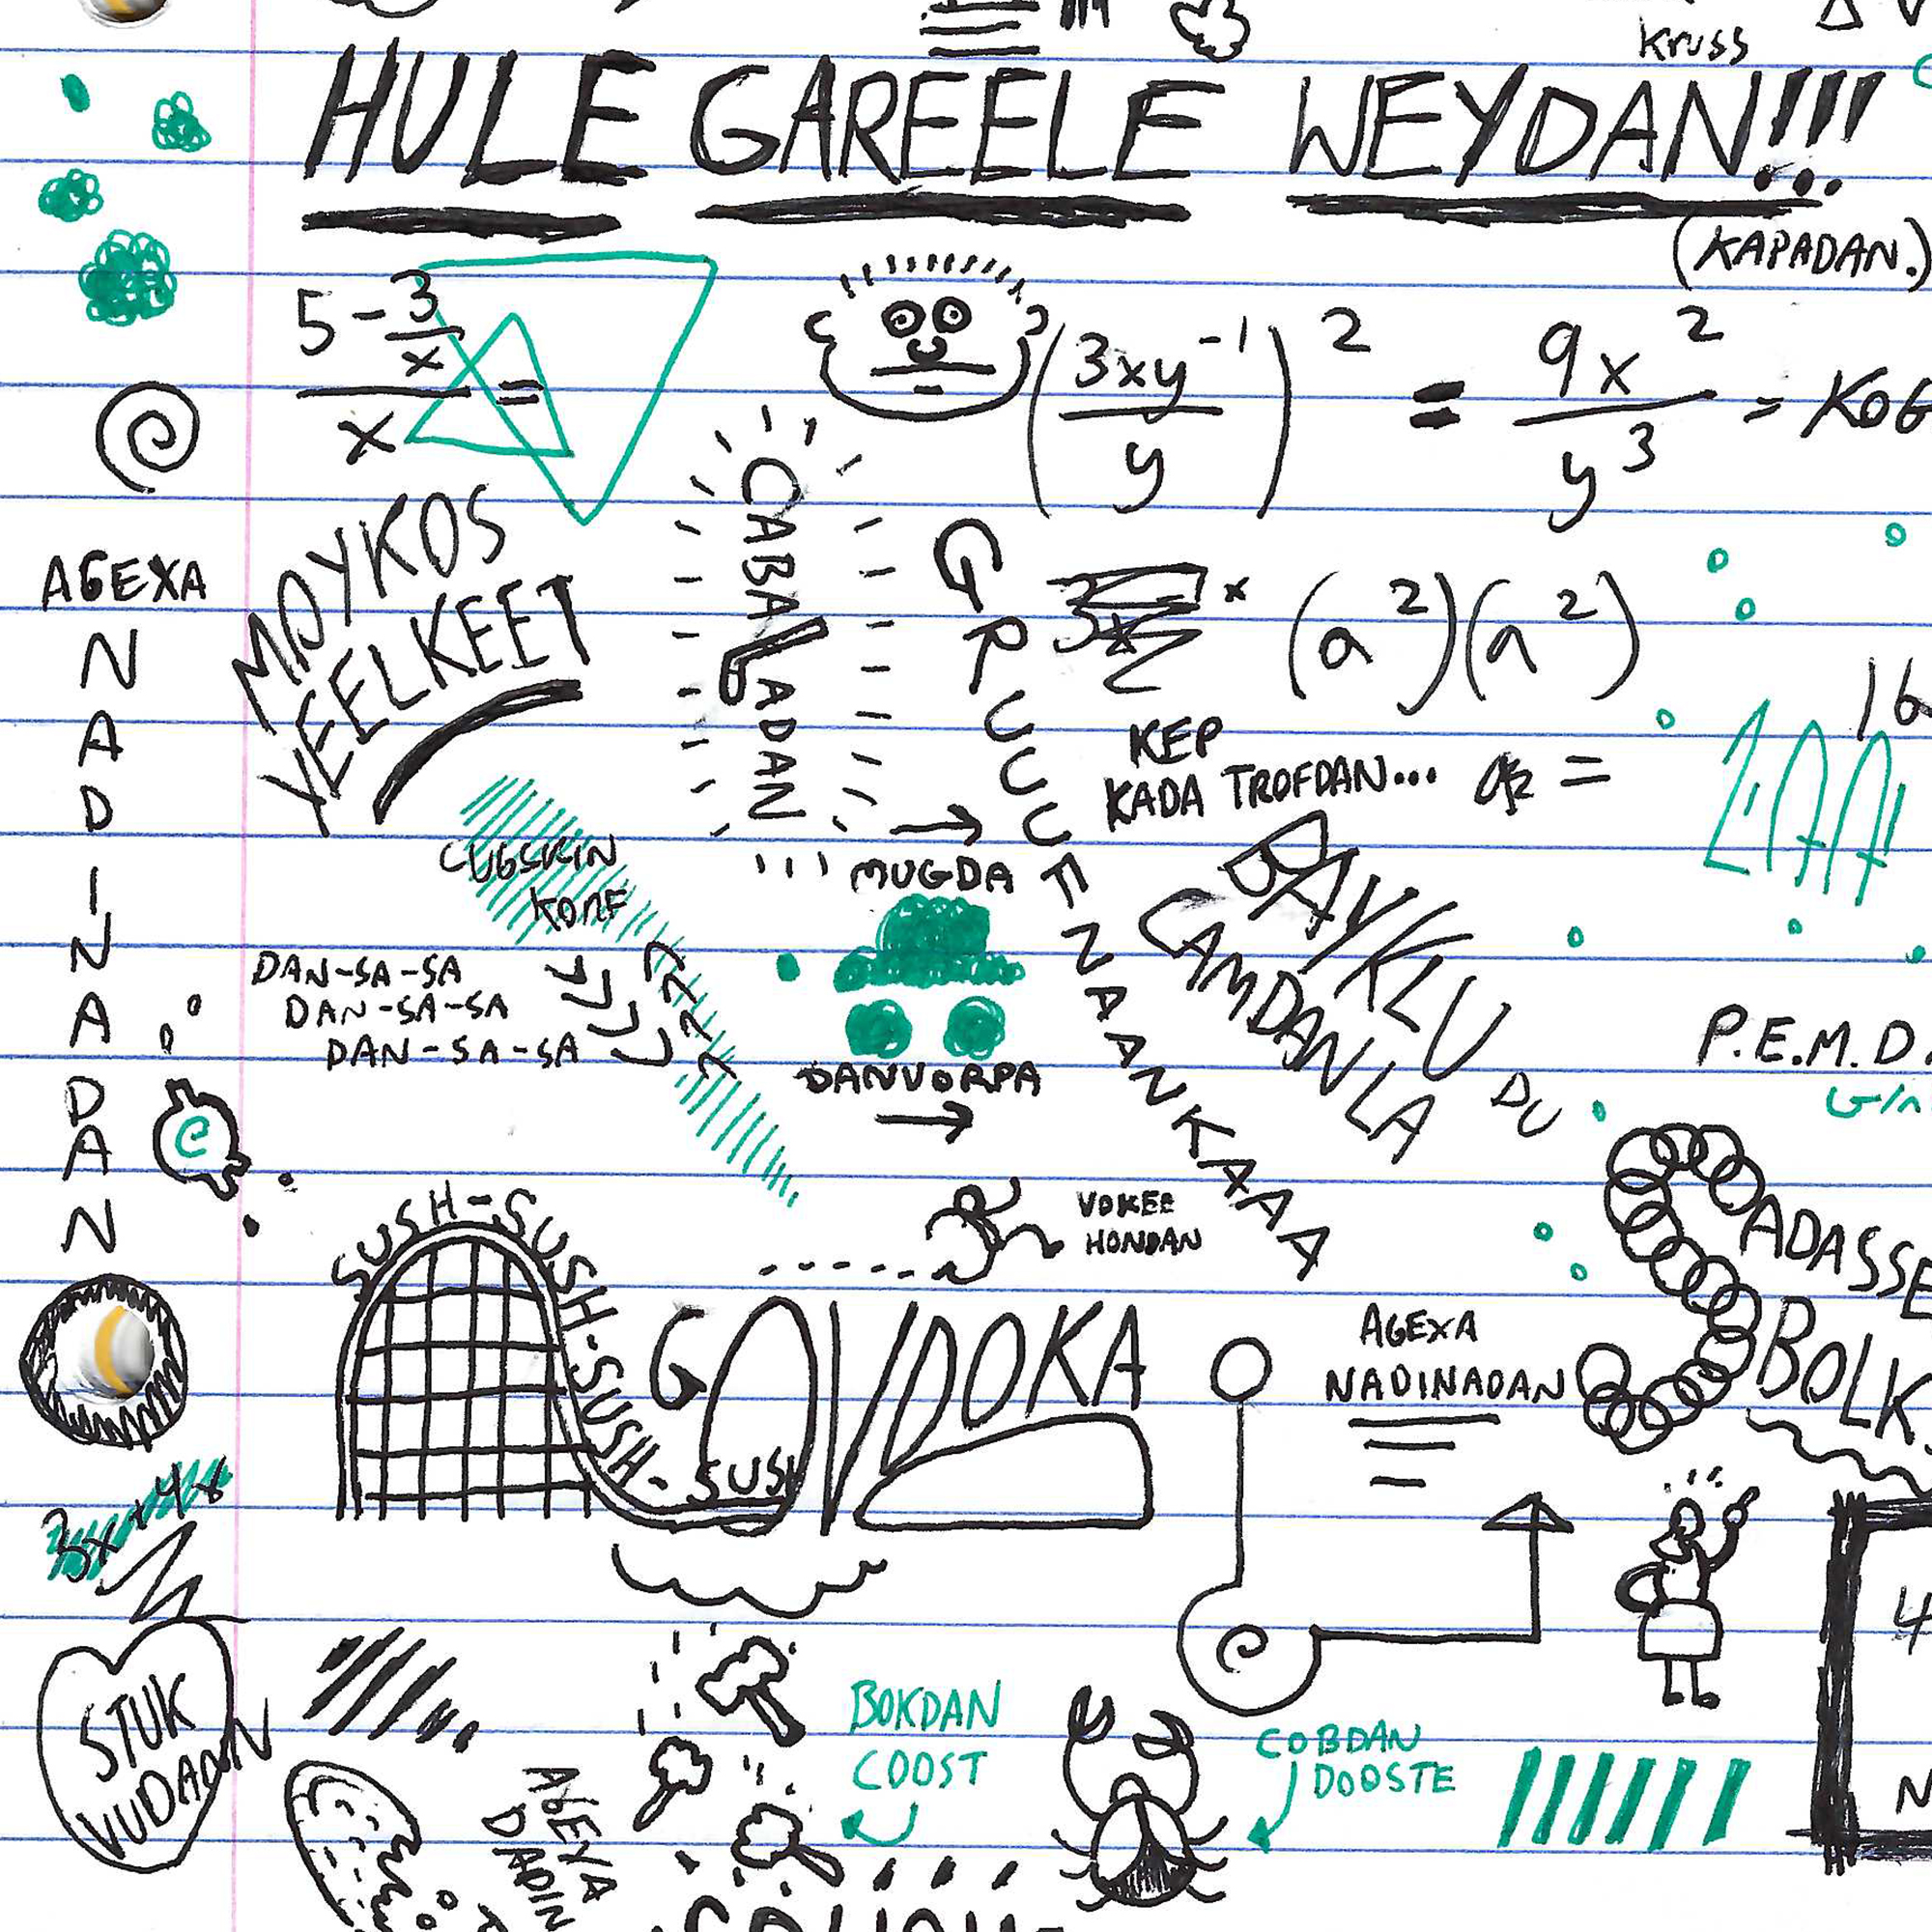 Kruss
HULE GAREELE WEYDAN!!!
(KAPADAN.)
5 - 3/x
x
=
(3xy^-1 / y)^2 = 9x^2 / y^3 =
AGEXA
NADINADAN
MOYKOS
YEELKEET
CABALADAN
GRUUUFNAANKAAA
(a^2)(a^2)
16
KEP
KADA TROFDAN...
=
MUGDA
CUGSKIN
KOMF
DAN-SA-SA
DAN-SA-SA
DAN-SA-SA
DANVORPA
BAYKLU DU
CAMDANLA
P.E.M.D.
e
SUSH-SUSH-SUSH-SUSH-SUSH
VOKEE
HONDAN
GOVDOKA
AGEXA
NADINADAN
ADASSE
BOLK
3x+4x
STUK
VUDAAN
BOKDAN
COOST
COBDAN
DOOSTE
4
N